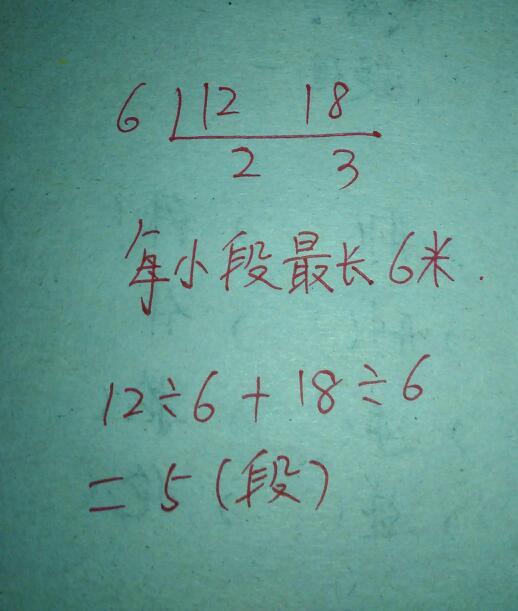 6 12 18
2 3
每小段最长6米.
12÷6+18÷6
=5(段)